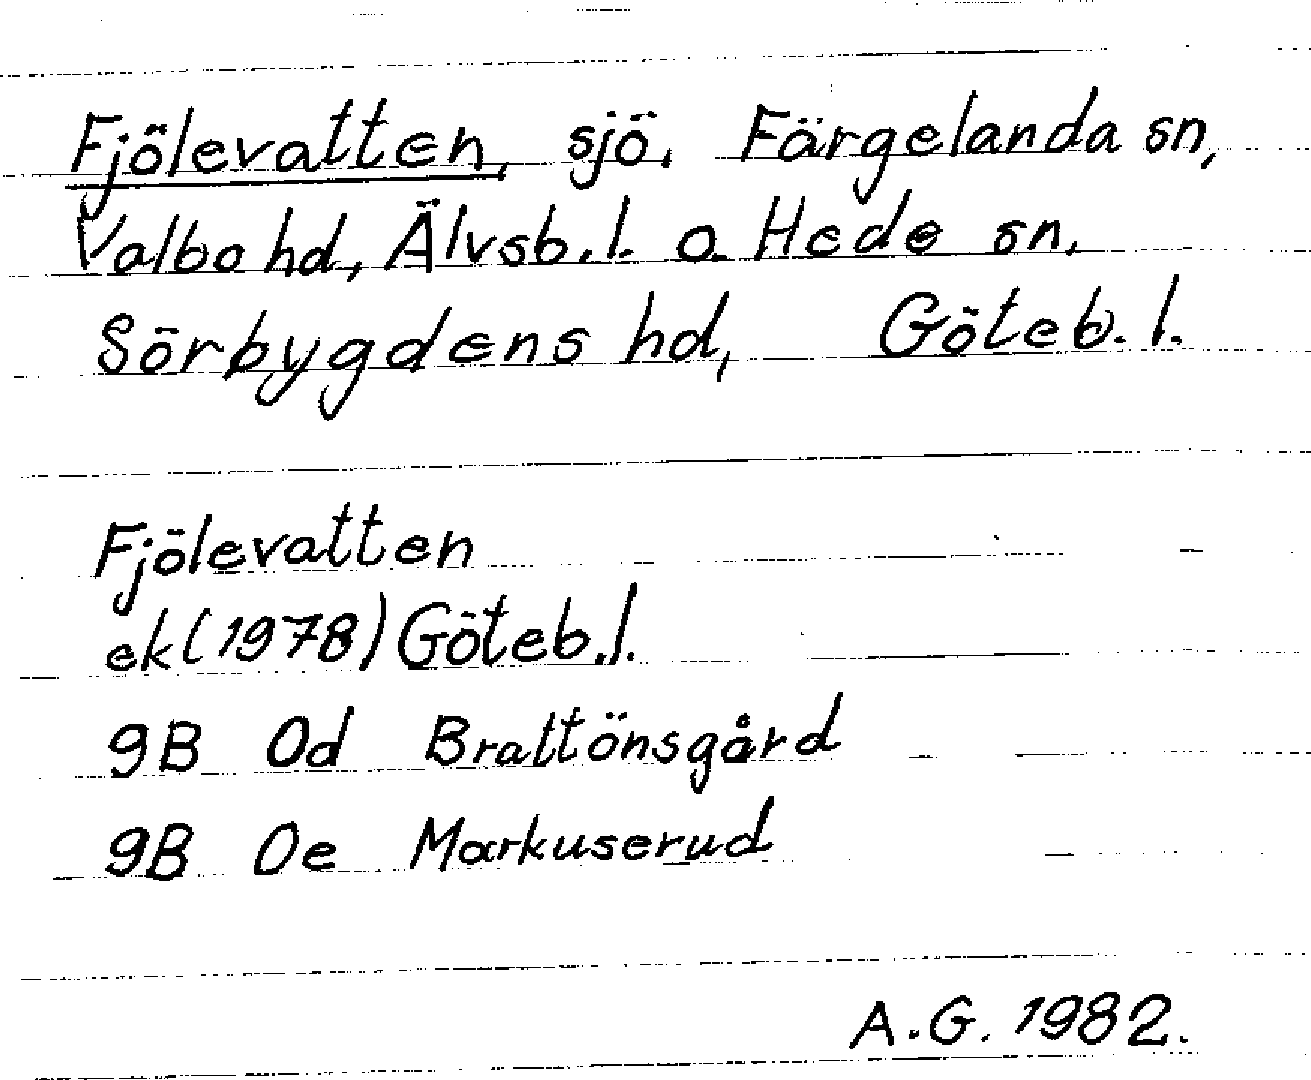 Fjölevatten, sjö, Färgelanda sn,
Valbo hd, Älvsb.l. o. Hede sn,
Sörbygdens hd, Göteb.l.
Fjölevatten
ek(1978) Göteb.l.
9B 0d Brattönsgård
9B 0e Markuserud
A.G. 1982.